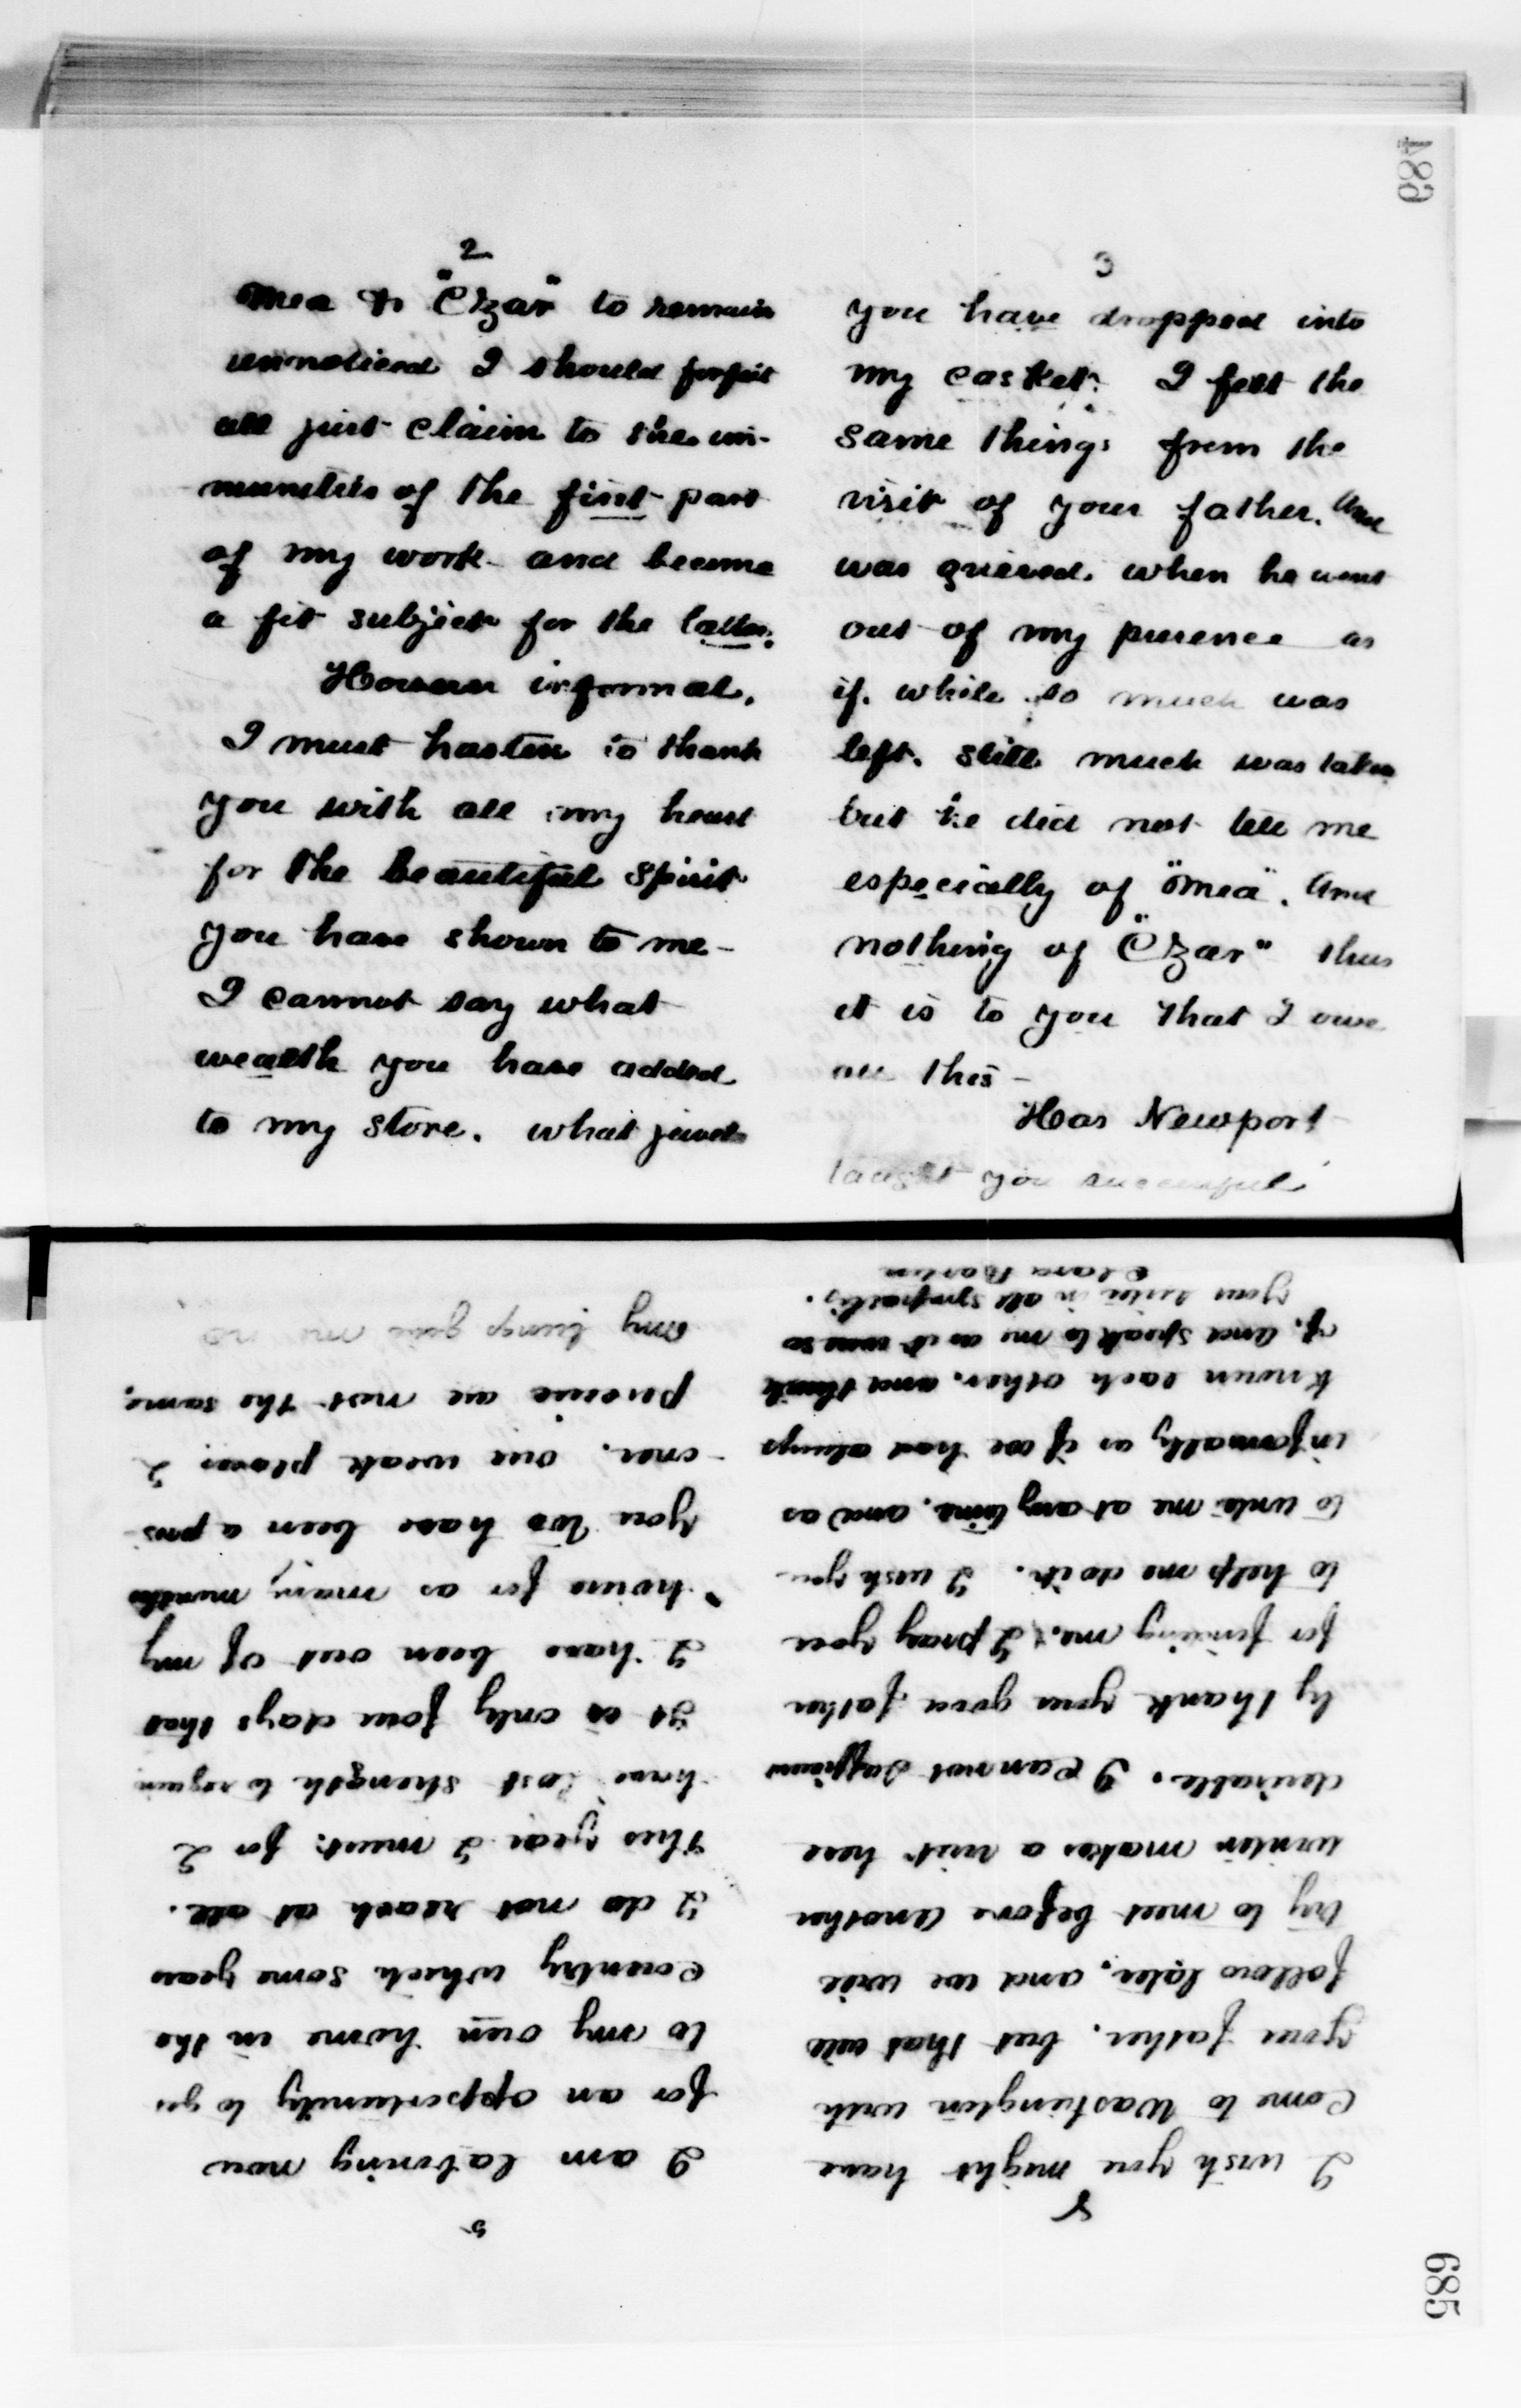 684
2
Omea & "Czar" to remain
unnoticed I should forfeit
all just claim to the im-
munities of the first part
of my work and become
a fit subject for the latter.
However informal,
I must hasten to thank
you with all my heart
for the beautiful spirit
you have shown to me -
I cannot say what
wealth you have added
to my store. what jewels
3
you have dropped into
my casket. I felt the
same things from the
visit of your father. And
was grieved. when he went
out of my presence as
if. while so much was
left. still much was taken
but he did not tell me
especially of "Omea". And
nothing of "Czar" thus
it is to you that I owe
all this -
Has Newport
taught you successful
5
I am laboring now
for an opportunity to get
to my own home in the
Country which some years
I do not reach at all.
This year I must: for I
have lost strength to regain
It is only four days that
I have been out of my
house for as many months
You too have been a pris-
oner. our weak places I
perceive are not the same.
My lungs give me no
8
I wish you might have
Come to Washington with
your father. but that will
follow later, and we will
try to meet before another
winter makes a visit here
desirable. I cannot sufficient
ly thank your good father
for finding me. I pray you
to help me do it. I wish you
to write me at any time. and as
informally as if we had always
known each other. and think
of. and speak to me as it were so
your sister in all sympathy.
Clara Barton
685